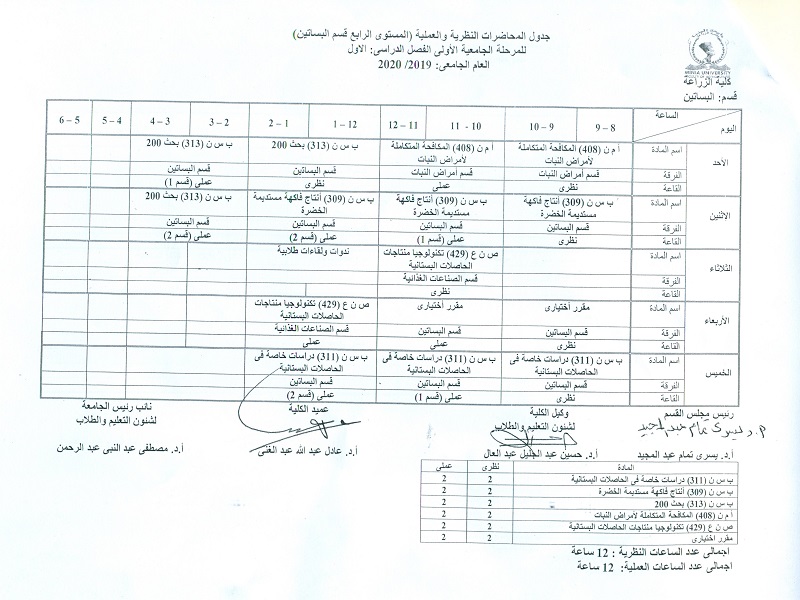 جدول المحاضرات النظرية والعملية (المستوى الرابع قسم البساتين)
للمرحلة الجامعية الأولى الفصل الدراسى: الاول
العام الجامعى: 2019/ 2020
MINIA UNIVERSITY
كلية الزراعة
قسم: البساتين
الساعة
اليوم
8 – 9
9 – 10
10 - 11
11 – 12
12 – 1
1 – 2
2 – 3
3 – 4
4 – 5
5 – 6
الأحد
اسم المادة
أ م ن (408) المكافحة المتكاملة لأمراض النبات
أ م ن (408) المكافحة المتكاملة لأمراض النبات
ب س ن (313) بحث 200
ب س ن (313) بحث 200
الفرقة
قسم أمراض النبات
قسم أمراض النبات
قسم البساتين
قسم البساتين
القاعة
نظرى
عملى
نظرى
عملى (قسم 1)
الاثنين
اسم المادة
ب س ن (309) أنتاج فاكهة مستديمة الخضرة
ب س ن (309) أنتاج فاكهة مستديمة الخضرة
ب س ن (309) أنتاج فاكهة مستديمة الخضرة
ب س ن (313) بحث 200
الفرقة
قسم البساتين
قسم البساتين
قسم البساتين
قسم البساتين
القاعة
نظرى
عملى (قسم 1)
عملى (قسم 2)
عملى (قسم 2)
الثلاثاء
اسم المادة
ص ن ع (429) تكنولوجيا منتاجات الحاصلات البستانية
ندوات ولقاءات طلابية
الفرقة
قسم الصناعات الغذائية
القاعة
نظرى
الأربعاء
اسم المادة
مقرر أختيارى
مقرر أختيارى
ص ن ع (429) تكنولوجيا منتاجات الحاصلات البستانية
الفرقة
قسم البساتين
قسم البساتين
قسم الصناعات الغذائية
القاعة
نظرى
عملى
عملى
الخميس
اسم المادة
ب س ن (311) دراسات خاصة فى الحاصلات البستانية
ب س ن (311) دراسات خاصة فى الحاصلات البستانية
ب س ن (311) دراسات خاصة فى الحاصلات البستانية
الفرقة
قسم البساتين
قسم البساتين
قسم البساتين
القاعة
نظرى
عملى (قسم 1)
عملى (قسم 2)
رئيس مجلس القسم
وكيل الكلية
لشئون التعليم والطلاب
عميد الكلية
نائب رئيس الجامعة
لشئون التعليم والطلاب
أ.د. يسرى تمام عبد المجيد
أ.د. يسرى تمام عبد المجيد
أ.د. حسين عبد الجليل عبد العال
أ.د. عادل عبد الله عبد الغنى
أ.د. مصطفى عبد النبى عبد الرحمن
المادة نظرى عملى
ب س ن (311) دراسات خاصة فى الحاصلات البستانية 2 2
ب س ن (309) أنتاج فاكهة مستديمة الخضرة 2 2
ب س ن (313) بحث 200 2 2
أ م ن (408) المكافحة المتكاملة لأمراض النبات 2 2
ص ن ع (429) تكنولوجيا منتاجات الحاصلات البستانية 2 2
مقرر اختيارى 2 2
اجمالى عدد الساعات النظرية : 12 ساعة
اجمالى عدد الساعات العملية: 12 ساعة